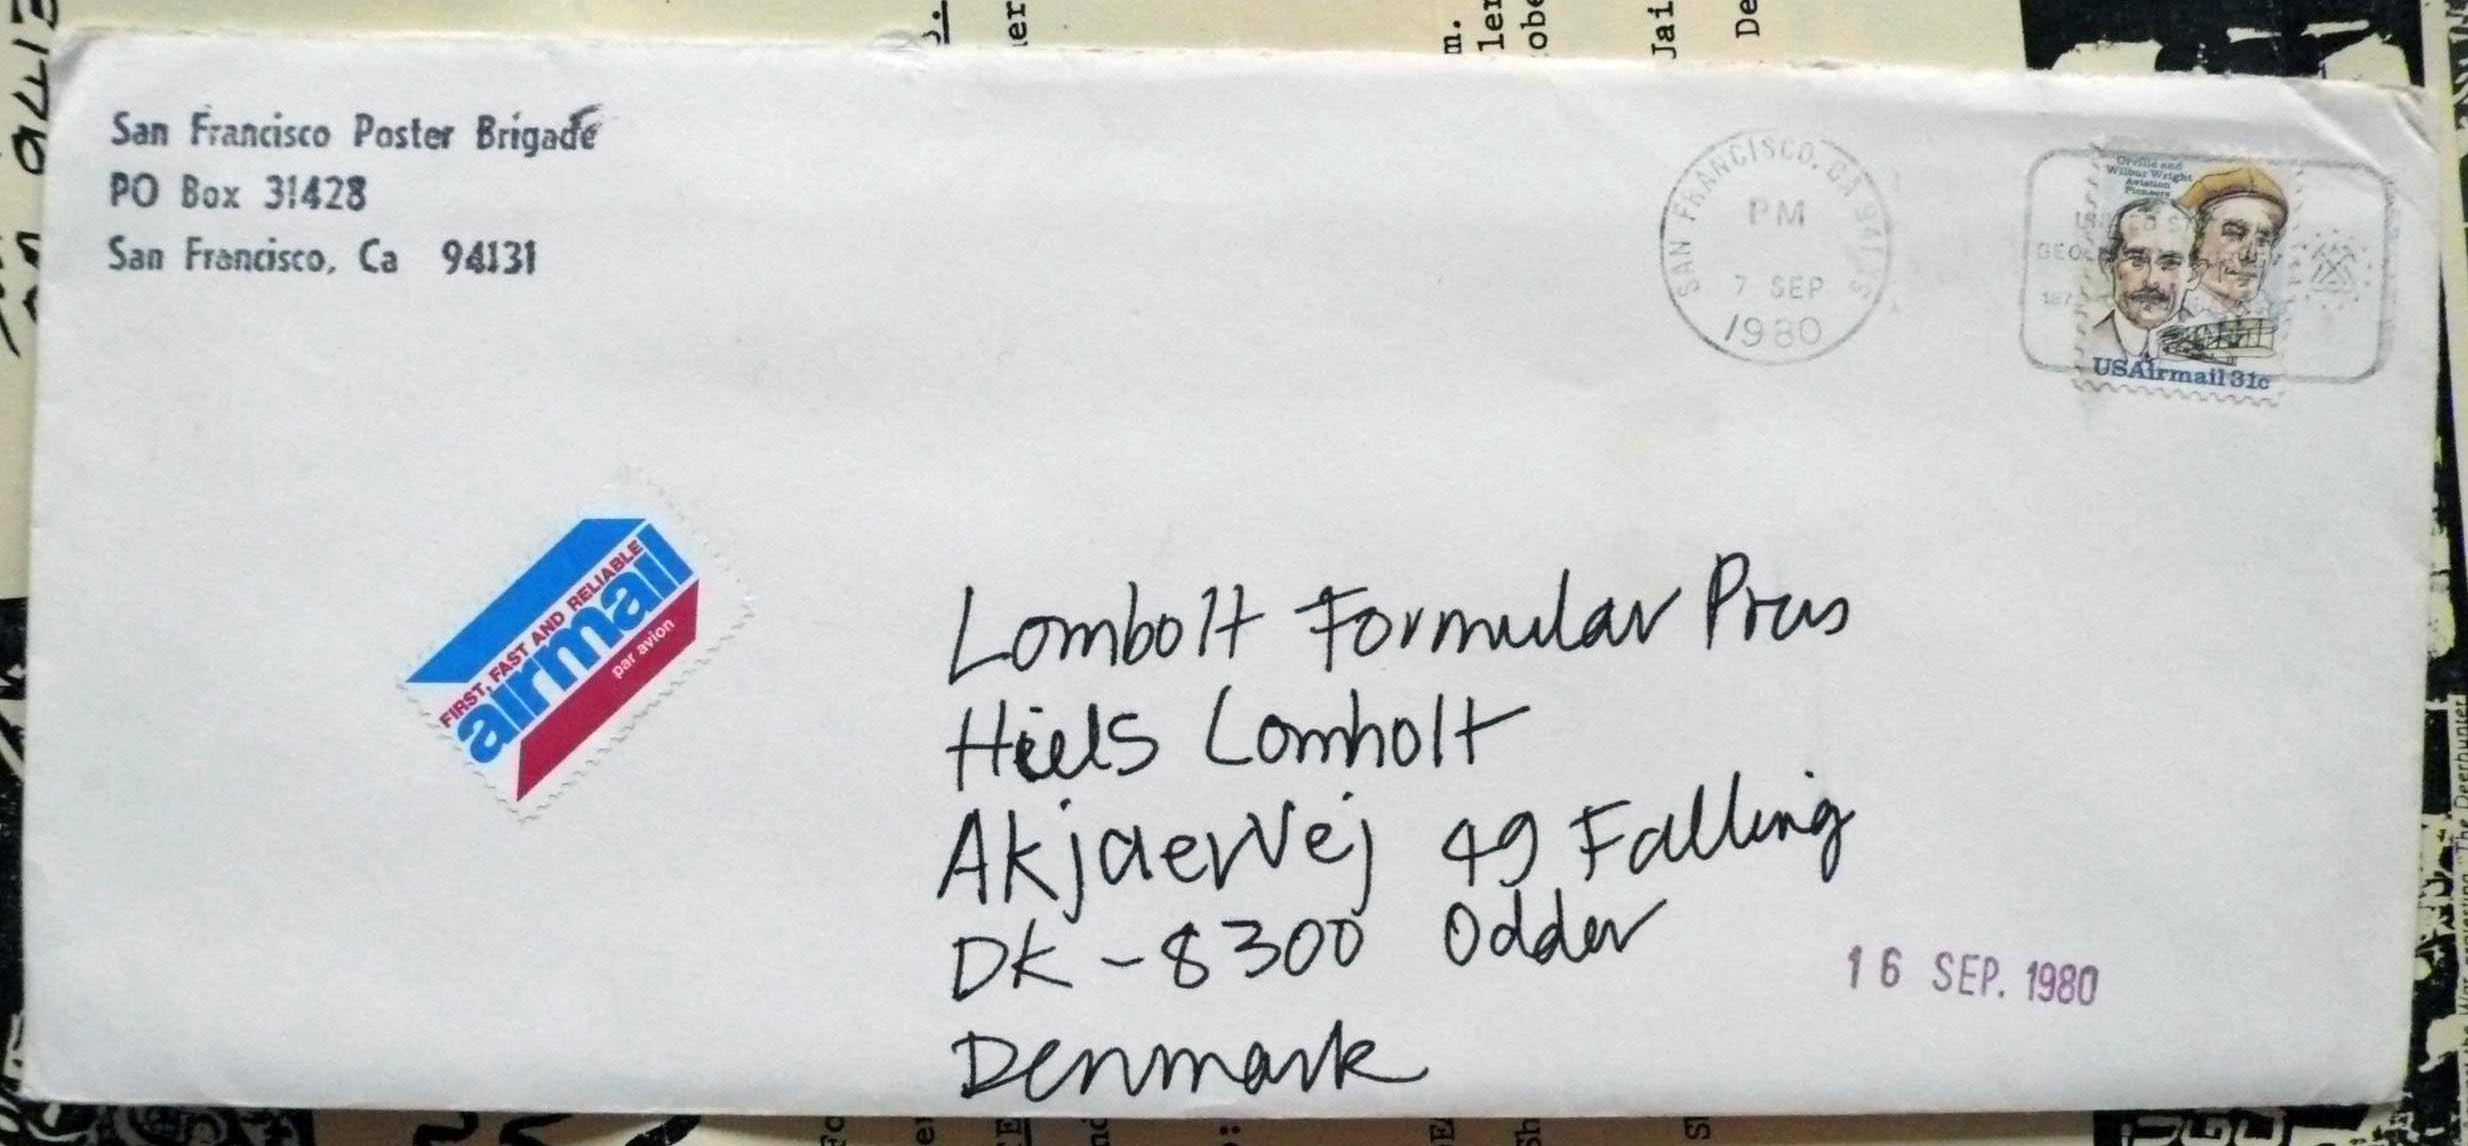 San Francisco Poster Brigade
PO Box 31428
San Francisco, Ca 94131
SAN FRANCISCO, CA 941
PM
7 SEP
1980
Orville and
Wilbur Wright
Aviation
Pioneers
USAirmail 31c
FIRST, FAST AND RELIABLE
airmail
par avion
Lombolt Formular Press
Hiels Lomholt
Akjaervej 49 Falling
DK-8300 Odder
Denmark
16 SEP. 1980